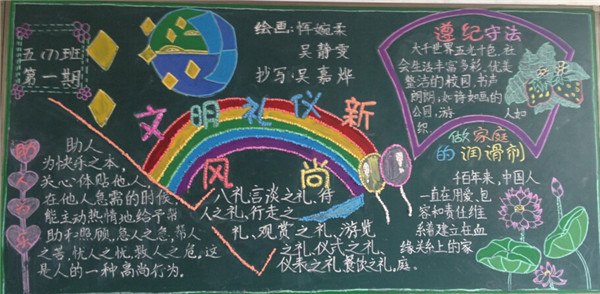 五(7)班
第一期
绘画：恽婉柔
吴静雯
抄写：吴嘉烨
文明礼仪新
风尚
助人为乐
助人
为快乐之本，
关心体贴他人，
在他人急需的时候，
能主动热情地给予帮
助和照顾，急人之急，帮人
之苦，忧人之忧，救人之危。这
是人的一种高尚行为。
八礼，言谈之礼、待
人之礼、行走之
礼、观赏之礼、游览
之礼、仪式之礼、
仪表之礼、餐饮之礼。
遵纪守法
大千世界五光十色，社
会生活丰富多彩，优美
整洁的校园，书声
朗朗；如诗如画的
公园，游人如
织
做家庭
的润滑剂
千百年来，中国人
一直在用爱、包
容和责任维
系着建立在血
缘关系上的家
庭。